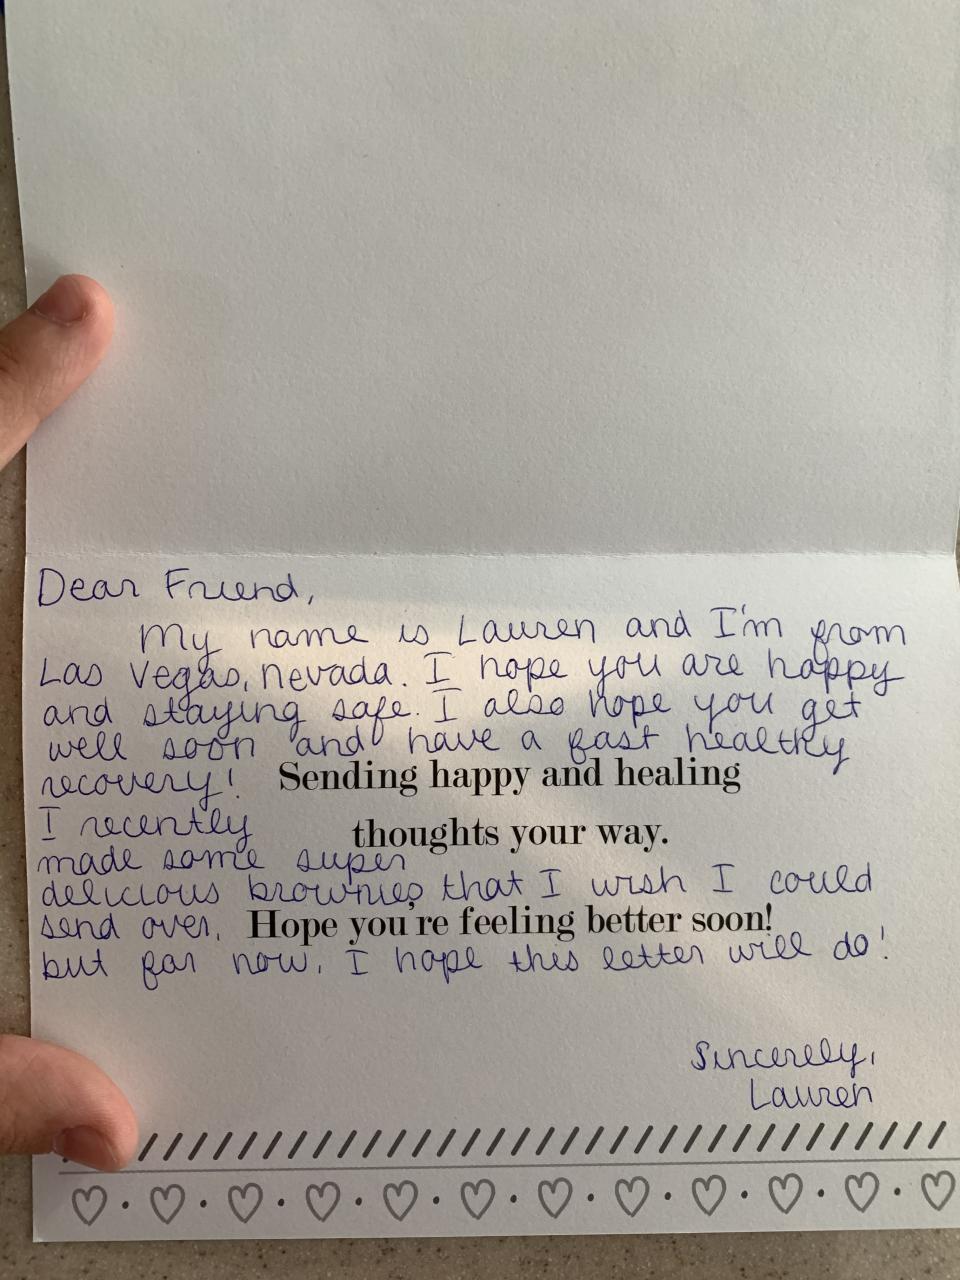 Dear Friend,
My name is Lauren and I'm from
Las Vegas, Nevada. I hope you are happy
and staying safe. I also hope you get
well soon and have a fast healthy
recovery!
Sending happy and healing
I recently
thoughts your way.
made some super
delicious brownies that I wish I could
send over,
Hope you're feeling better soon!
but for now, I hope this letter will do!
Sincerely,
Lauren